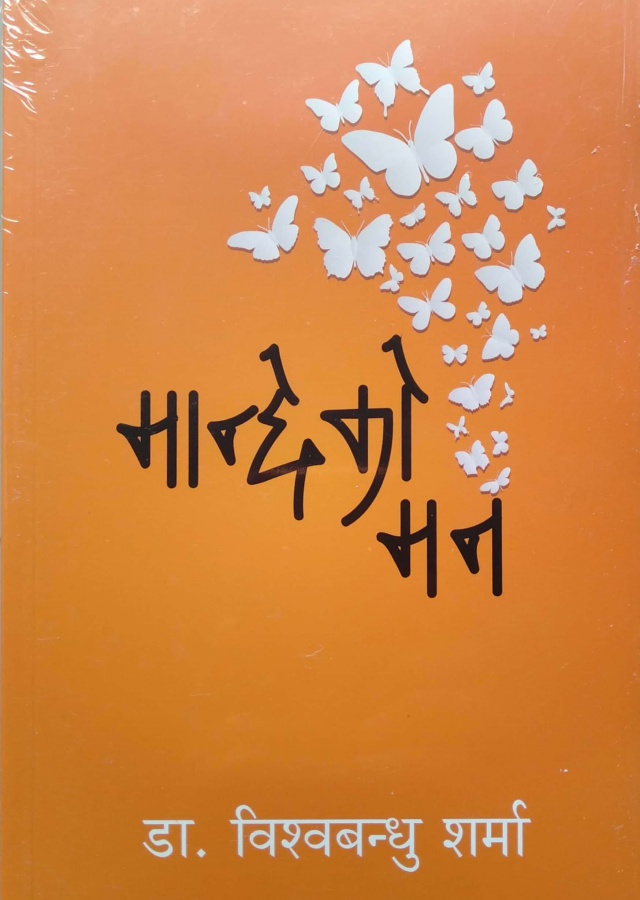 मान्छेको
मन
डा. विश्वबन्धु शर्मा